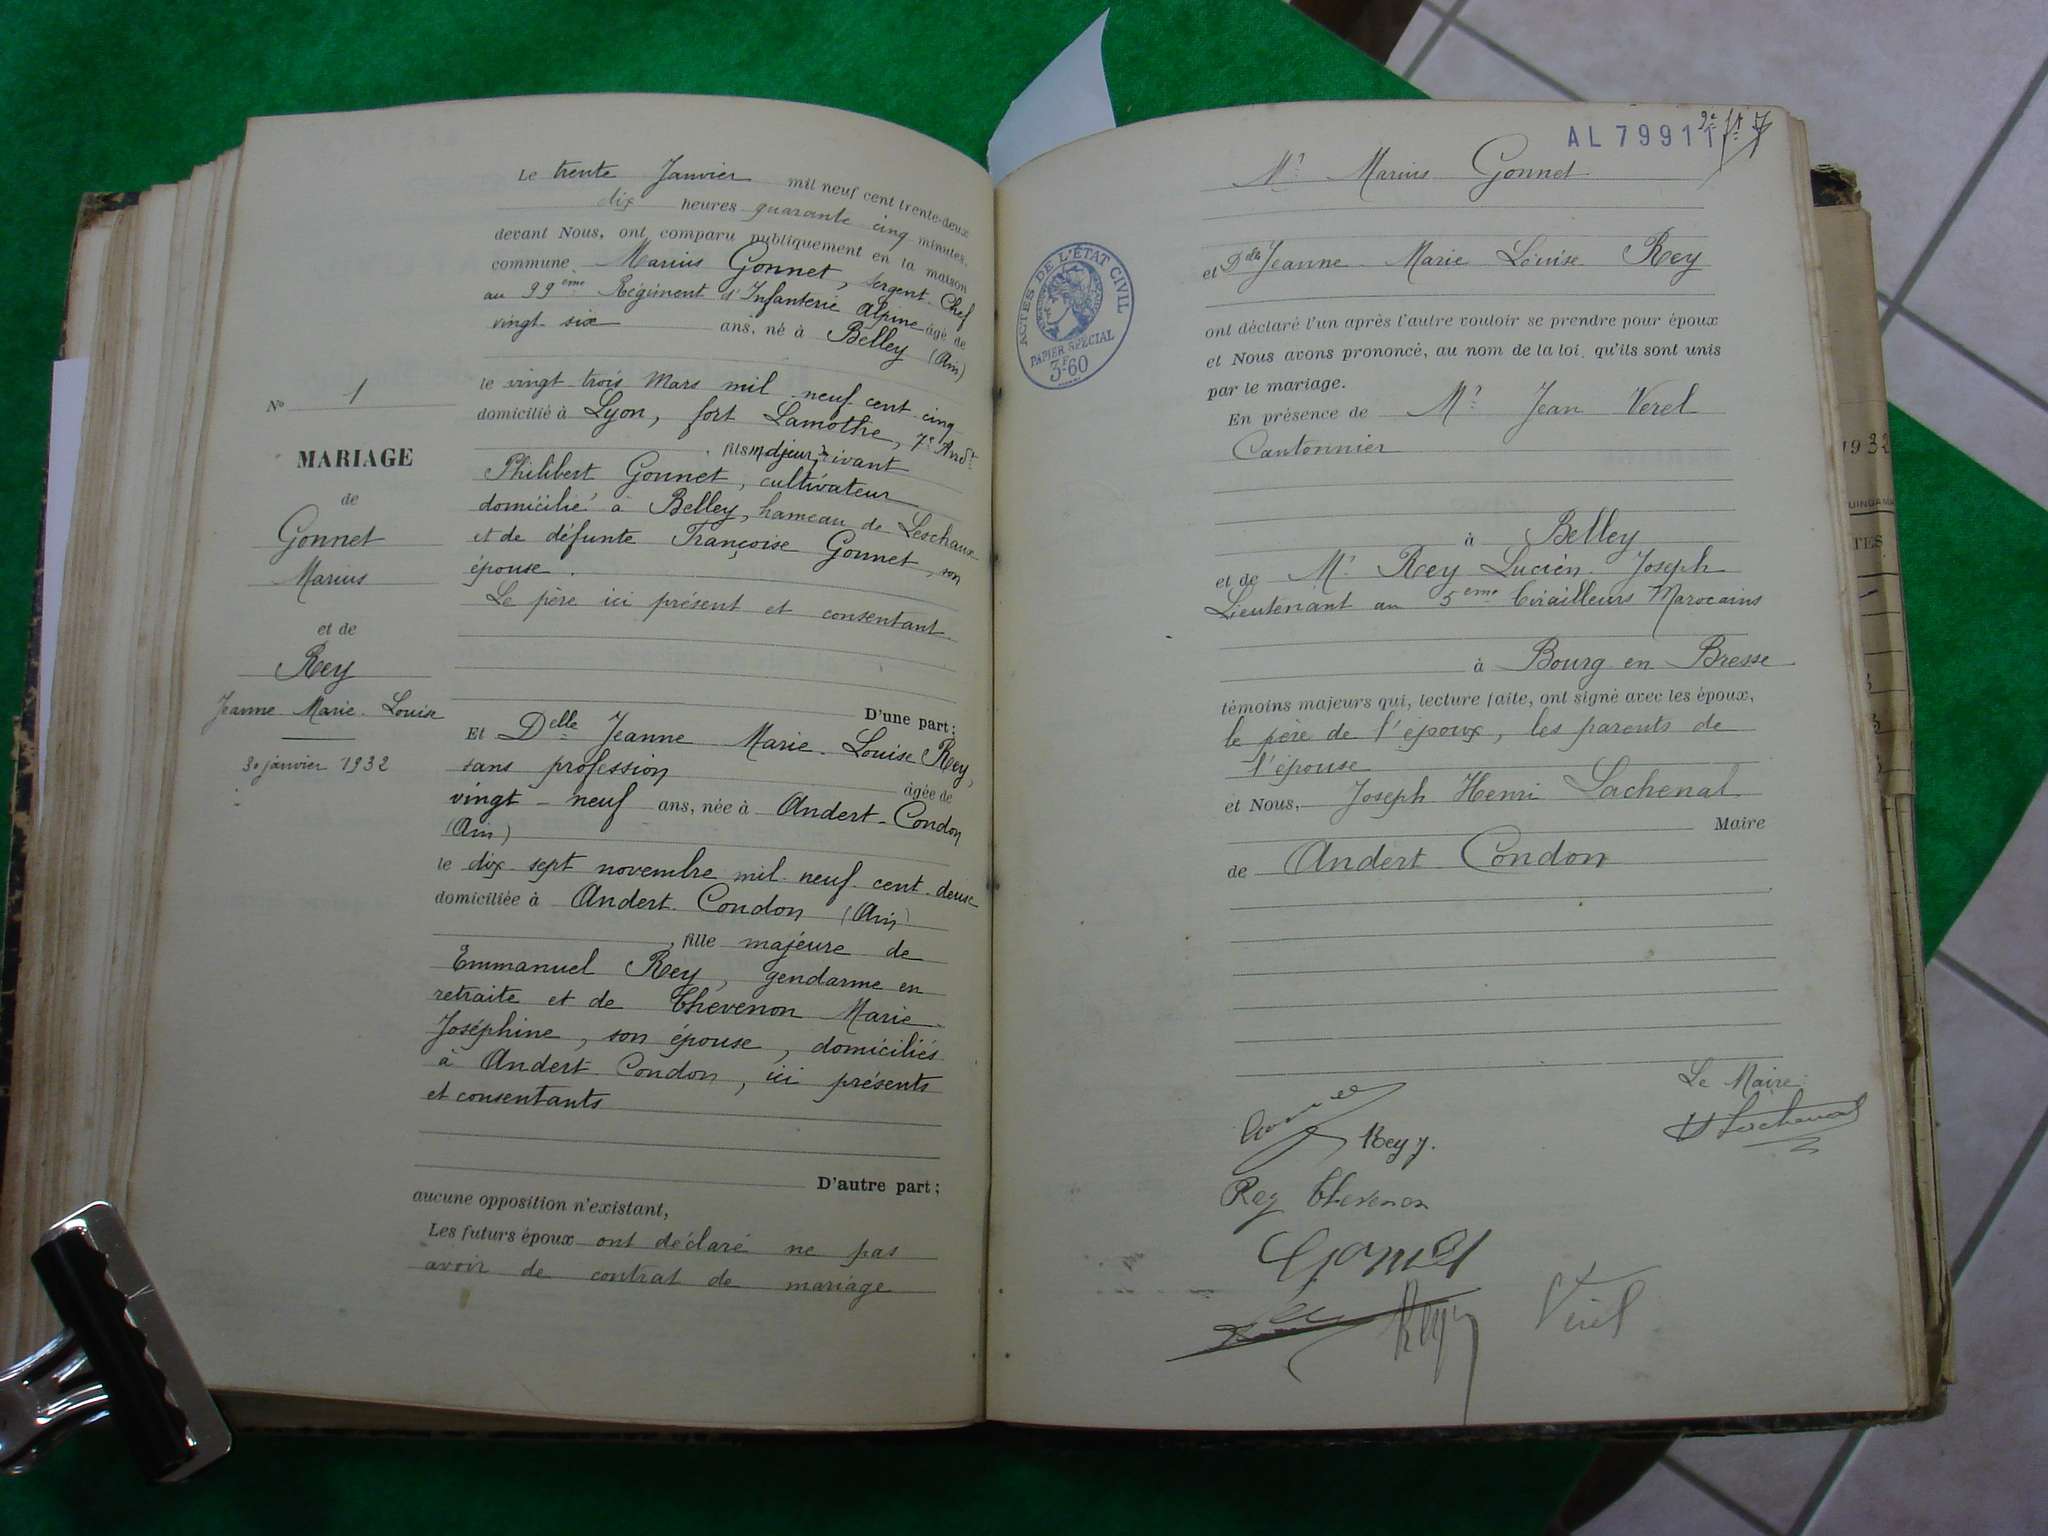 Le trente Janvier mil neuf cent trente-deux
dix heures quarante cinq minutes,
devant Nous, ont comparu publiquement en la maison
commune Marius Gonnet, Sergent-Chef
au 99eme Régiment d'Infanterie Alpine âgé de
vingt-six ans, né à Belley (Ain)
le vingt-trois Mars mil neuf cent cinq
domicilié à Lyon, fort Lamothe, 7e Arrdt
fils majeur vivant
Philibert Gonnet, cultivateur
domicilié à Belley, hameau de Leschaux
et de défunte Françoise Gonnet, son
épouse.
Le père ici présent et consentant
D'une part;
Et Delle Jeanne Marie-Louise Rey,
sans profession âgée de
vingt-neuf ans, née à Andert-Condon
(Ain)
le dix-sept novembre mil neuf cent deux
domiciliée à Andert-Condon (Ain)
, fille majeure de
Emmanuel Rey, gendarme en
retraite et de Thevenon Marie
Joséphine, son épouse, domiciliés
à Andert-Condon, ici présents
et consentants
D'autre part;
aucune opposition n'existant,
Les futurs époux ont déclaré ne pas
avoir de contrat de mariage
No 1
MARIAGE
de
Gonnet
Marius
et de
Rey
Jeanne Marie-Louise
30 janvier 1932
AL 79911
Mr Marius Gonnet
et Delle Jeanne Marie Louise Rey
ACTES DE L'ÉTAT CIVIL
PAPIER SPÉCIAL
3F60
ont déclaré l'un après l'autre vouloir se prendre pour époux
et Nous avons prononcé, au nom de la loi, qu'ils sont unis
par le mariage.
En présence de Mr Jean Verel
Cantonnier
à Belley
et de Mr Rey Lucien Joseph
Lieutenant au 5eme Tirailleurs Marocains
à Bourg en Bresse
témoins majeurs qui, lecture faite, ont signé avec les époux,
le père de l'époux, les parents de
l'épouse
et Nous, Joseph Henri Lachenal
Maire
de Andert-Condon
Le Maire
H Lachenal
Rey J.
Rey Thevenon
Gonnet
Rey
Verel
1932
TES